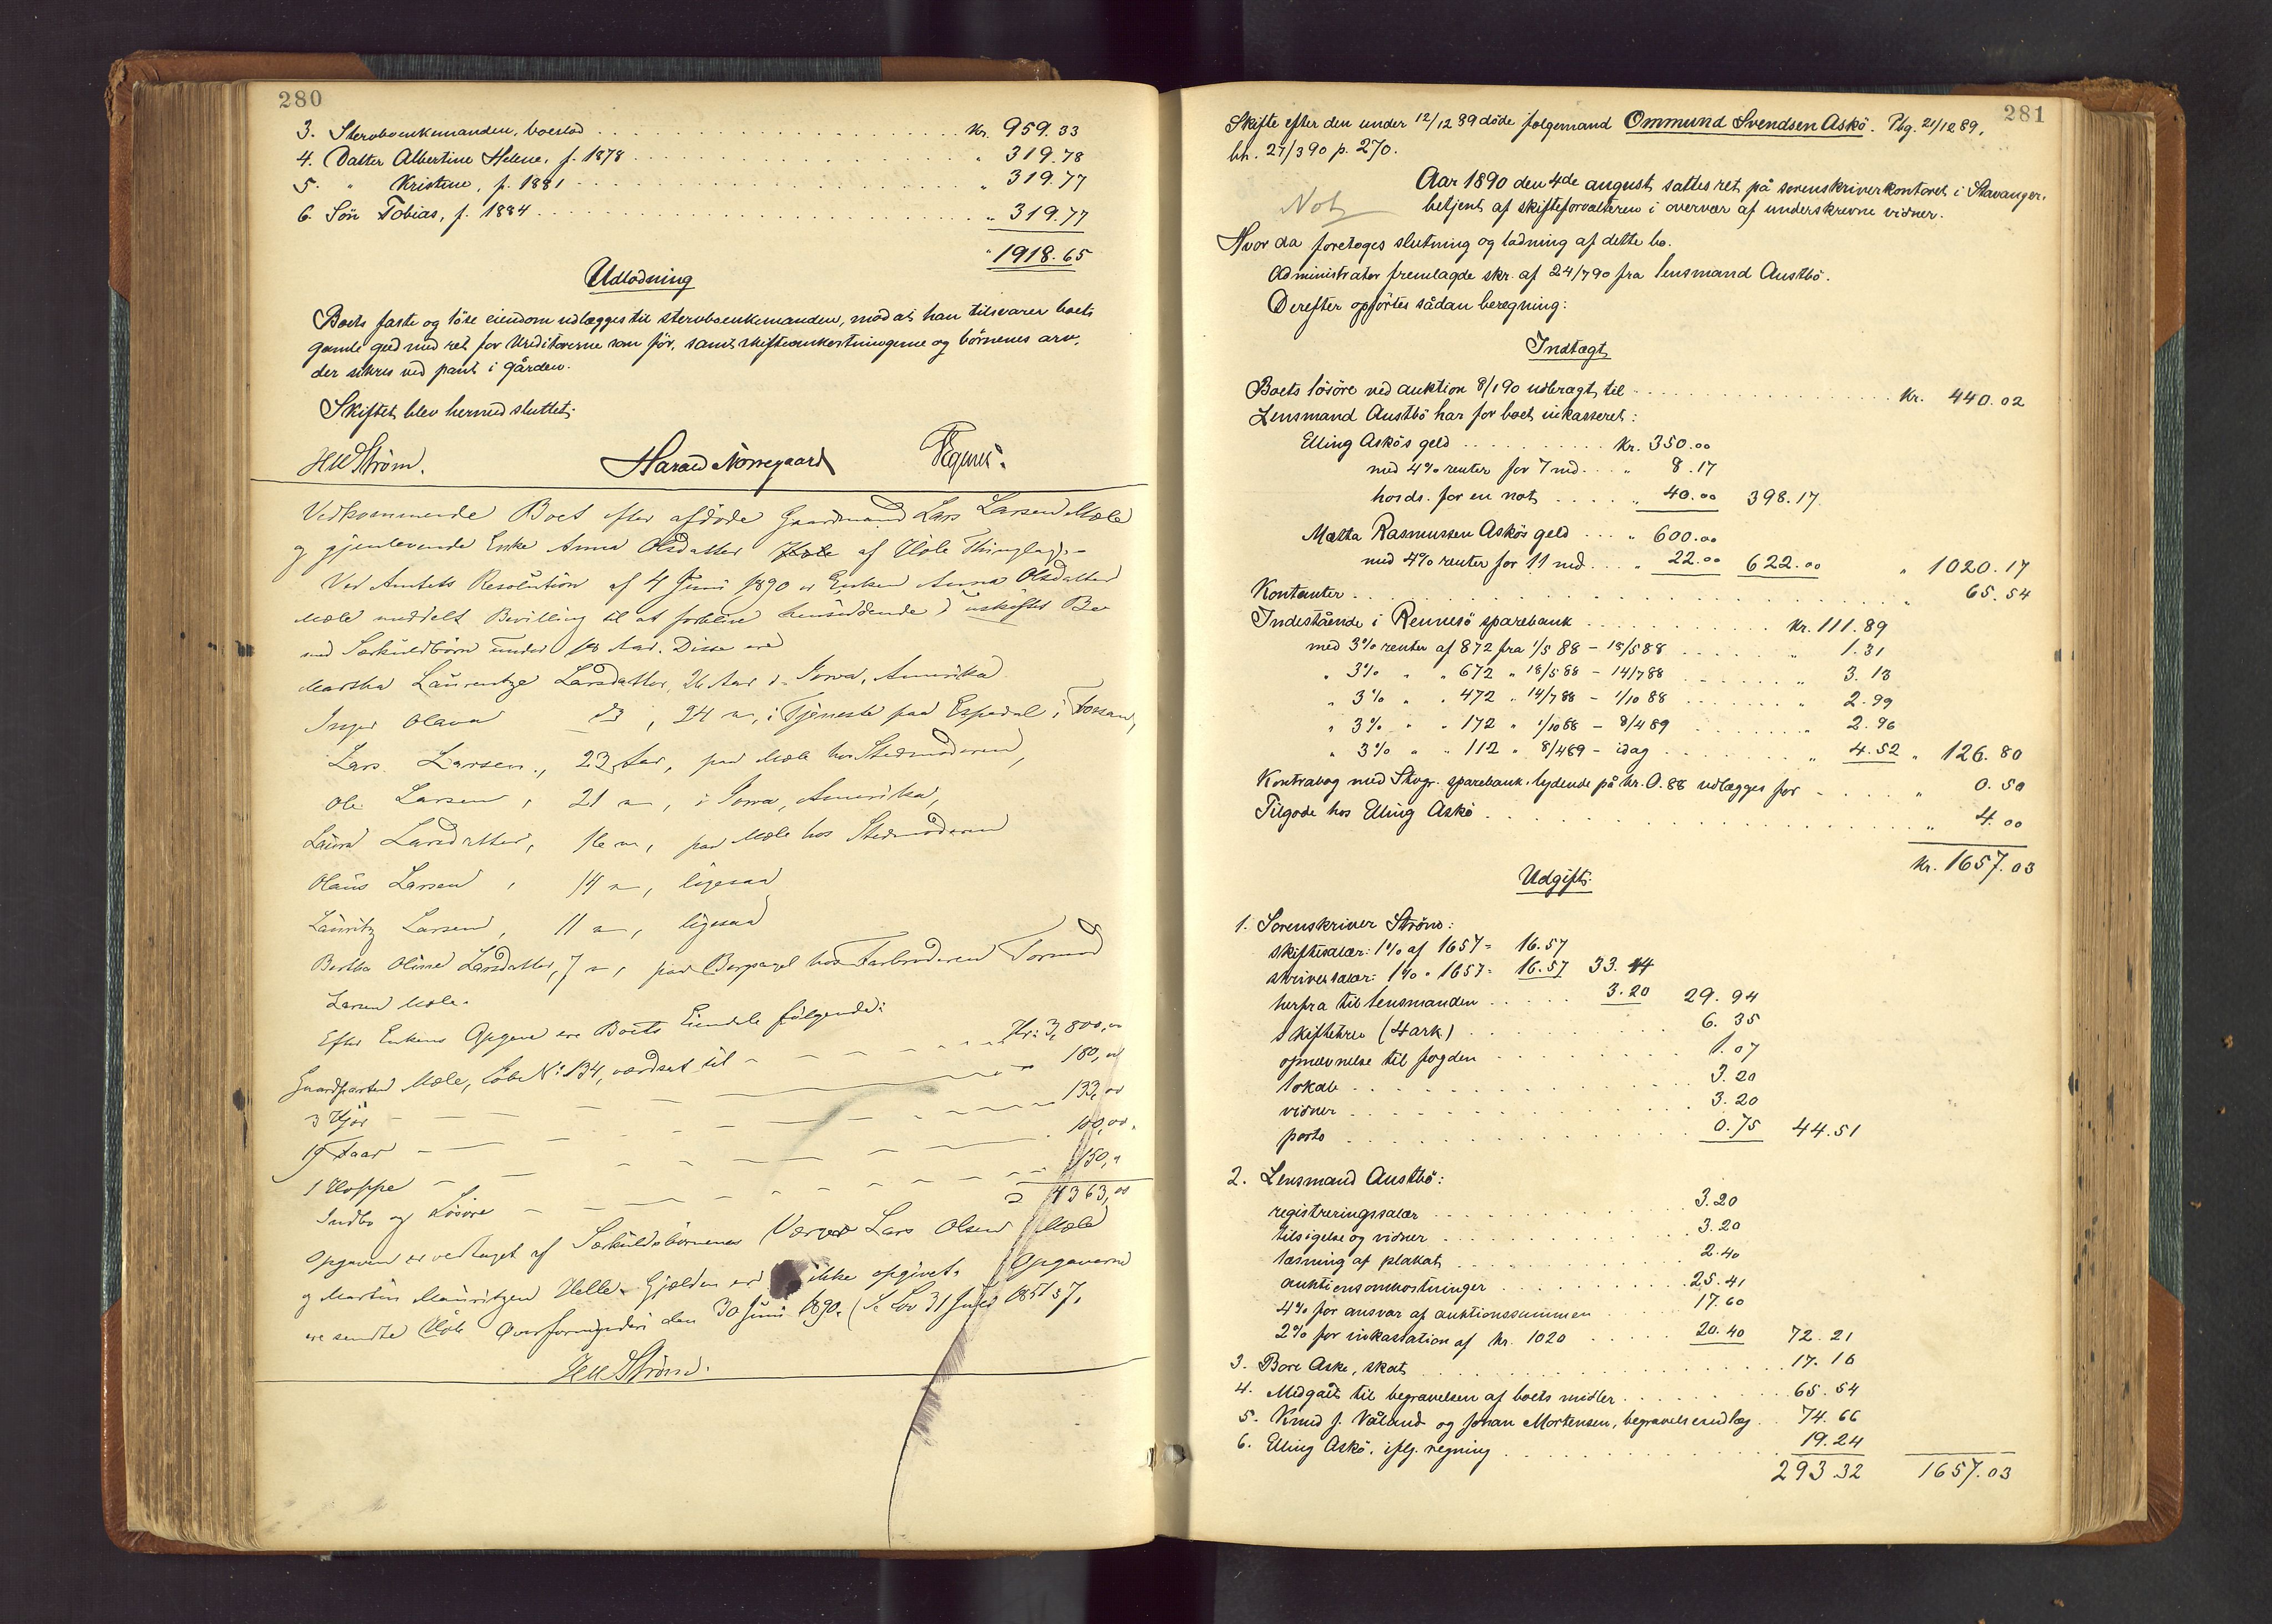 280
3. Stervboenkemanden, boeslod . . . kr. 959.33
4. Datter Albertine Helene, f. 1878 . . . " 319.78
5. " Kristine, f. 1881 . . . " 319.77
6. Søn Tobias, f. 1884 . . . " 319.77
" 1918.65
Udlodning
Boets faste og løse eiendom udlægges til stervboenkemanden, mod at han tilsvarer boets
gamle gjed med ret for kreditorerne som før, samt skifteomkostningerne og børnenes arv,
der sikres ved pant i gården.
Skiftet blev hermed sluttet.
HWStrøm. Harald Norregaard
Vedkommende Boet efter afdøde Gaardmand Lars Larsen Mæle
og gjenlevende Enke Anna Olsdatter af Høle Thinglag.
Ved Amtets Resolution af 4 Juni 1890 er Enken Anna Olsdatter
Mæle meddelt Bevilling til at forblive hensiddende i uskiftet Bo
med Særkuldbørn under Aar. Disse ere
Martha Laurentze Larsdatter, 26 Aar i Iowa, Amerika
Inger Olava do, 24 " , i Tjeneste paa Espedal i Fossan,
Lars Larsen, 23 Aar, paa Mæle hos Stedmoderen,
Ole Larsen, 21 " , i Iowa, Amerika,
Laura Larsdatter, 16 " , paa Mæle hos Stedmoderen
Olaus Larsen, 14 " , ligesaa
Lauritz Larsen, 11 " , ligesaa
Bertha Oline Larsdatter, 7 " , paa Bergagel hos Farbroderen Tormod
Larsen Mæle.
Efter Enkens Opgave ere Boets Eiendele følgende:
Gaardparten Mæle, Løbe No 134, værdsat til Kr: 3,800,00
3 Kjør 180,00
19 Faar 133,00
1 Hoppe 100,00.
Indbo og Løsøre 150,"
4363,00
Opgaven er vedtaget af Særkuldsbørnenes Værger Lars Olsen Mæle
og Martin Mauritzen Helle. Gjælden er ikke opgivet. Opgaverne
ere sendte Høle Overformynderi den 30 Juni 1890. (Se Lov 31 Juli 1851 § 7.
HWStrøm.
281
Skifte efter den under 12/12 89 døde følgemand Ommund Svendsen Askø. Pbg. 21/12 89,
bh. 27/3 90 p. 270.
Not
Aar 1890 den 4de august sattes ret på sorenskriverkontoret i Stavanger,
betjent af skifteforvalteren i overvær af underskrevne vidner.
Hvor da foretoges slutning og lodning af dette bo.
Administrator fremlagde skr. af 24/7 90 fra lensmand Austbø.
Derefter opførtes sådan beregning:
Indtægt
Boets løsøre ved auktion 8/1 90 udbragt til . . . kr. 440.02
Lensmand Austbø har for boet inkasseret:
Elling Askøs geld . . . kr. 350.00
med 4% renter for 7 md. . . " 8.17
hos ds. for en not . . . " 40.00 398.17
Malta Rasmussen Askøs geld . . . " 600.00
med 4% renter for 11 md. . . " 22.00 622.00 " 1020.17
Kontanter . . . " 65.54
Indestående i Rennesø sparebank . . . kr. 111.89
med 3% renter af 872 fra 1/5 88 - 18/5 88 . . . " 1.31
" 3% " " 672 " 18/5 88 - 14/7 88 . . . " 3.13
" 3% " " 472 " 14/7 88 - 1/10 88 . . . " 2.99
" 3% " " 172 " 1/10 88 - 8/4 89 . . . " 2.96
" 3% " " 112 " 8/4 89 - idag . . . " 4.52 " 126.80
Kontrabog med Stvgr. sparebank lydende på kr. 0.88 udlægges for . . . " 0.50
Tilgode hos Elling Askø . . . " 4.00
kr. 1657.03
Udgift:
1. Sorenskriver Strøm:
skiftesalær: 1% af 1657 = 16.57
skriversalær: 1% " 1657 = 16.57 33.14
herfra til lensmanden . . . 3.20 29.94
skiftebrev (4 ark) . . . 6.35
opnævnelse til fogden . . . 1.07
lokale . . . 3.20
vidner . . . 3.20
porto . . . 0.75 44.51
2. Lensmand Austbø:
registreringssalær . . . 3.20
tilsigelse og vidner . . . 3.20
læsning af plakat . . . 2.40
auktionsomkostninger . . . 25.41
4% for ansvar af auktionssummen 17.60
2% for inkassation af kr. 1020 . . . 20.40 72.21
3. Bore Aske, skat . . . 17.16
4. Medgået til begravelsen af boets midler . . . 65.54
5. Knud J. Våland og Johan Mortensen, begravelsesudlæg . . 74.66
6. Elling Askø, iflg. regning . . . 19.24
293.32 1657.03